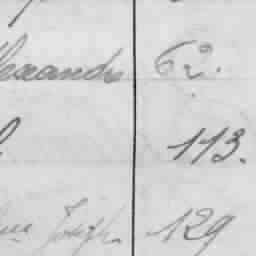 lexandre 62.
113.
Joseph 129